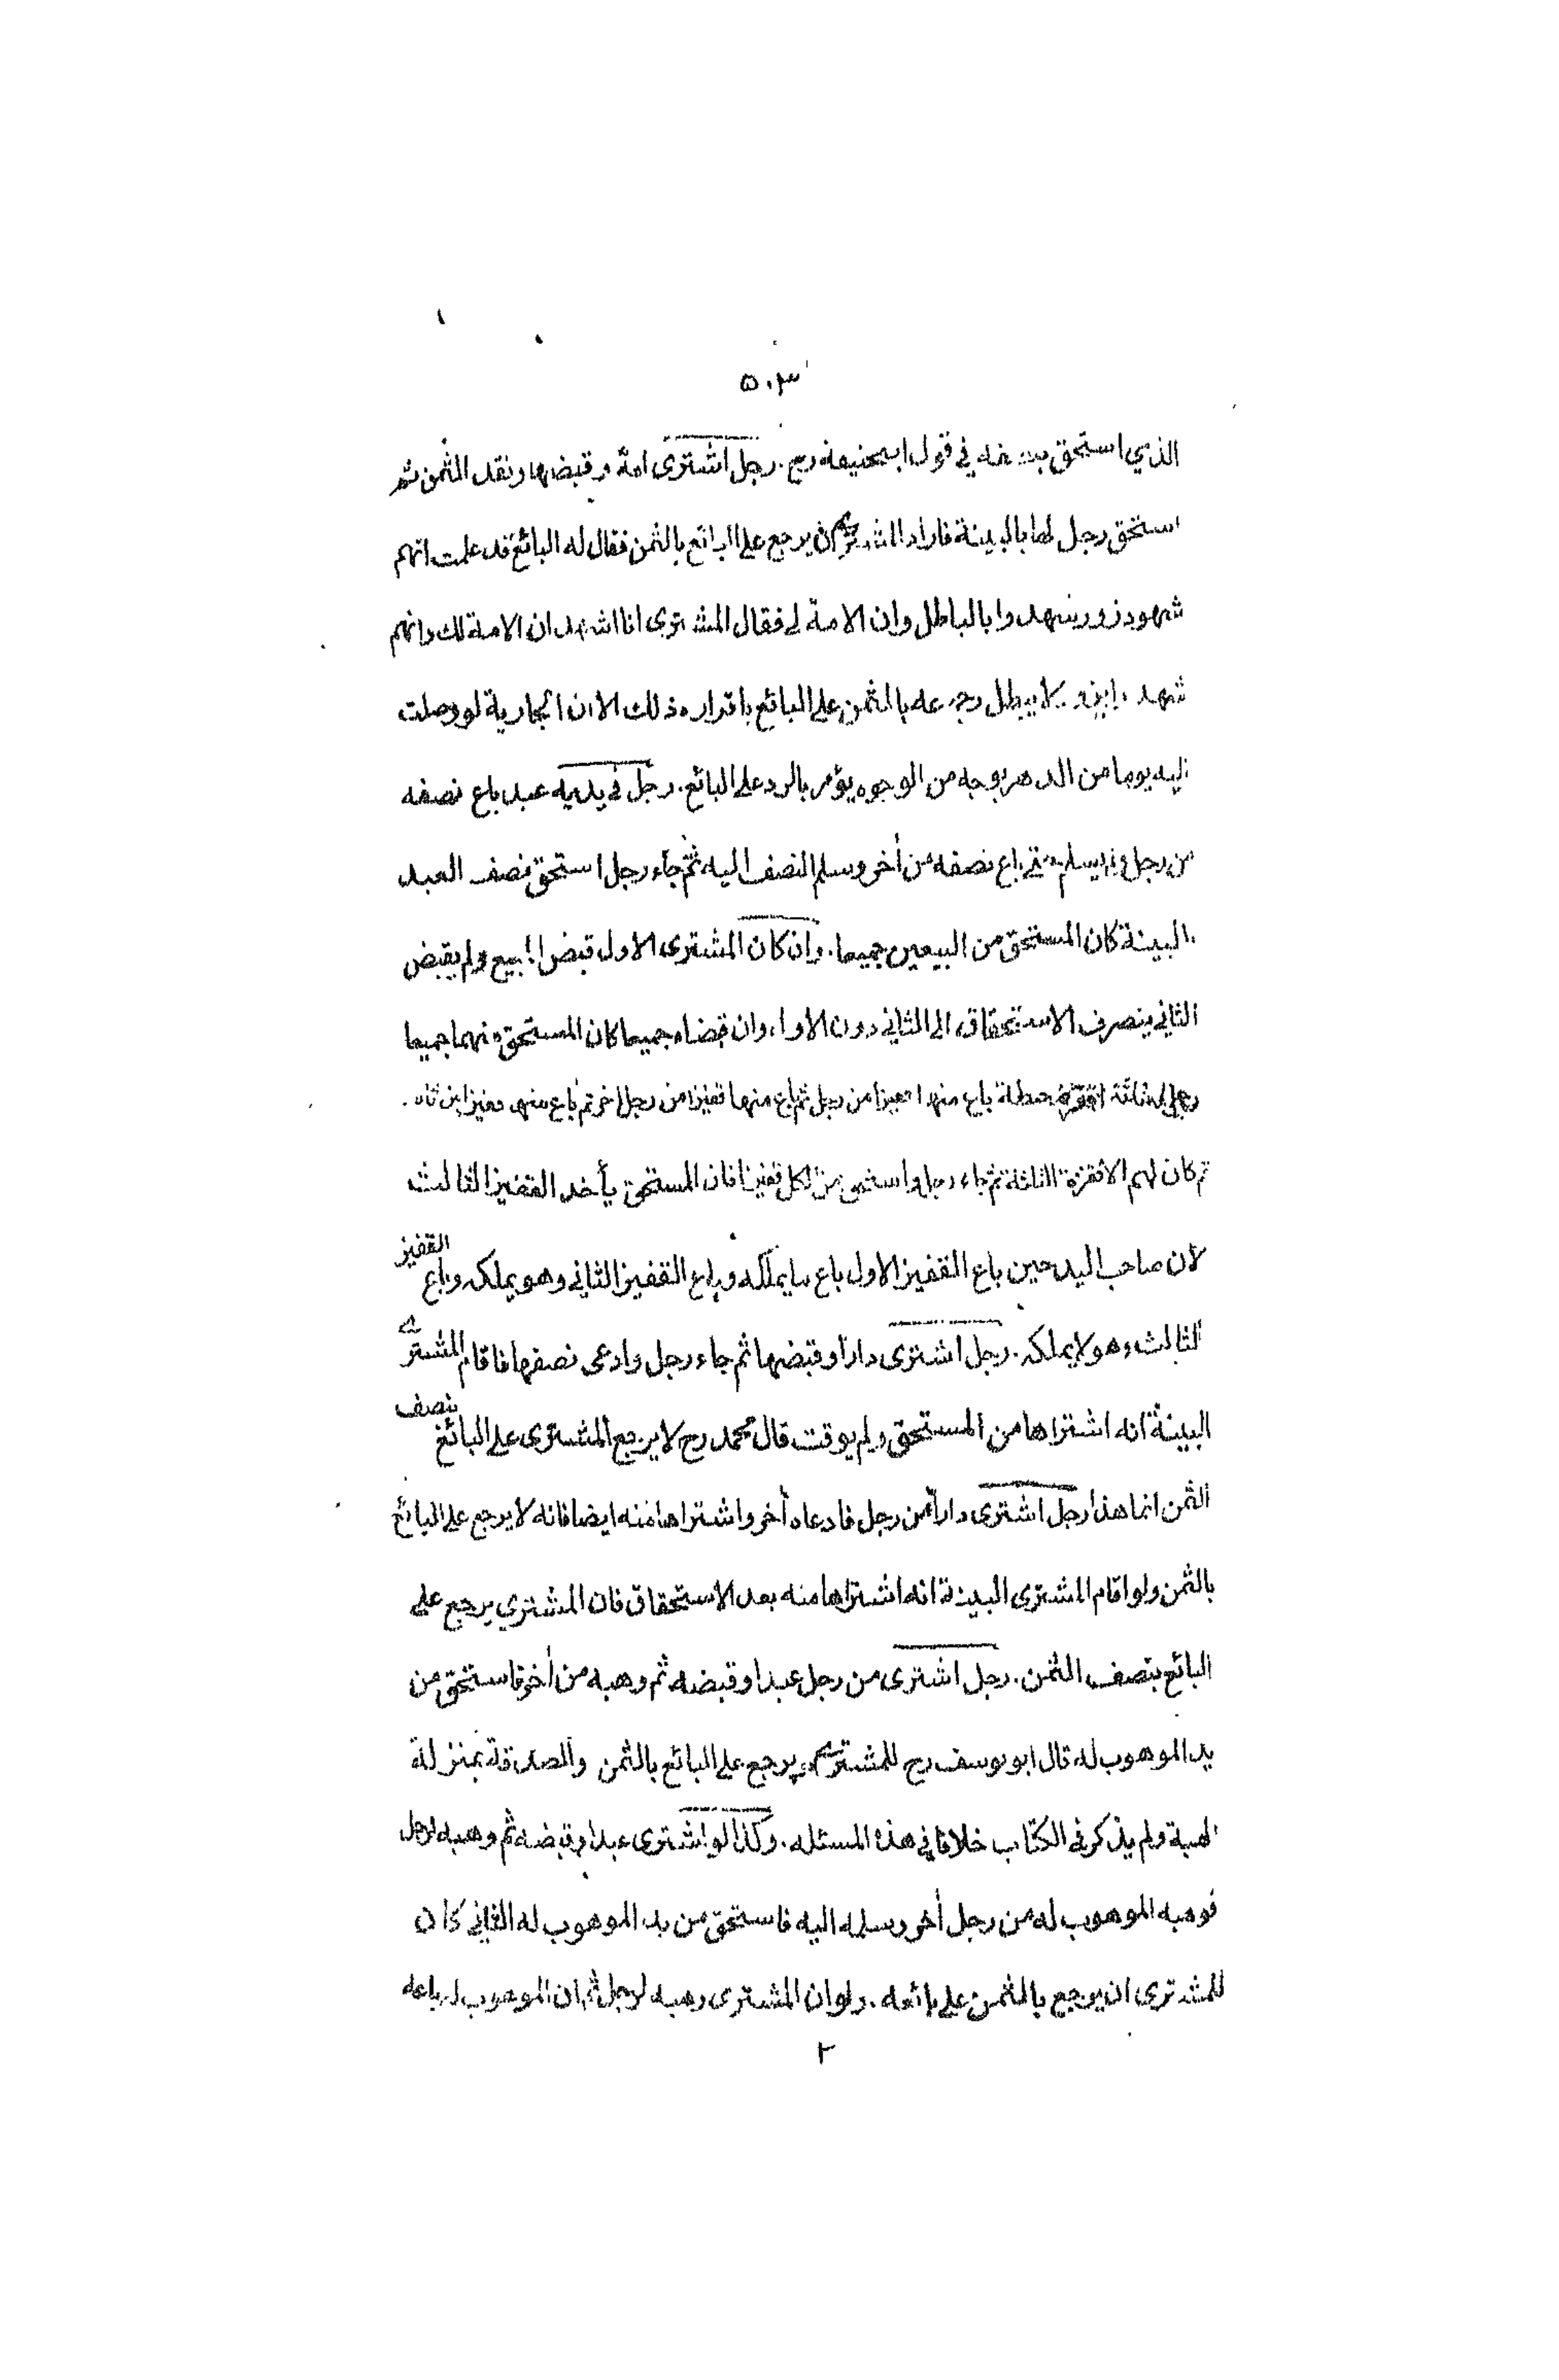 ٥٠٣
الذي استحق بعضه في قول ابيحنيفة رح. رجل اشترى امة وقبضها ونقد الثمن ثم
استحق رجل لها بالبينة فاراد المشتري ان يرجع على البائع بالثمن فقال له البائع قد علمت انهم
شهود زور شهدوا بالباطل وان الامة لي فقال المشترى انا اشهد ان الامة لك وانهم
لا يبطل رجوعه بالثمن على البائع باقراره ذلك الا ان الجارية لو وصلت
اليه يوما من الدهر بوجه من الوجوه يؤمر بالرد على البائع. رجل في يديه عبد باع نصفه
من رجل باع نصفه من أخر وسلم النصف اليه ثم جاء رجل استحق نصف العبد
بالبينة كان المستحق من البيعين جميعا. وان كان المشترى الاول قبض البيع ولم يقبض
الثاني ينصرف الاستحقاق الى الثاني دون الاول وان قبضاه جميعا كان المستحق منهما جميعا
رجل له ثلثة اقفزة حنطة باع منها قفيزا من رجل ثم باع منها قفيزا من رجل اخر ثم باع منها قفيزا من ثالث
ثم كال لهم الاقفزة الثلثة ثم جاء رجل واستحق من الكل قفيزا فان المستحق يأخذ القفيز الثالث
لان صاحب اليد حين باع القفيز الاول باع ما يملكه وباع القفيز الثاني وهو يملكه وباع القفيز
الثالث وهو لا يملكه. رجل اشترى دارا وقبضها ثم جاء رجل وادعى نصفها فاقام المشتري
البينة انه اشتراها من المستحق ولم يوقت قال محمد رح لا يرجع المشترى على البائع بنصف
الثمن انما هذا رجل اشترى دارا من رجل فادعاه أخر واشتراها منه ايضا فانه لا يرجع على البائع
بالثمن ولو اقام المشترى البينة انه اشتراها منه بعد الاستحقاق فان المشتري يرجع على
البائع بنصف الثمن. رجل اشترى من رجل عبدا وقبضه ثم وهبه من أخر فاستحق من
يد الموهوب له قال ابو يوسف رح للمشتري يرجع على البائع بالثمن والصدقة بمنزلة
الهبة ولم يذكر في الكتاب خلافا في هذه المسئله. وكذا لو اشترى عبدا وقبضه ثم وهبه لرجل
فوهبه الموهوب له من رجل أخر وسلمه اليه فاستحق من يد الموهوب له الثاني كان
للمشترى ان يرجع بالثمن على بائعه. ولو ان المشترى وهبه لرجل ثم ان الموهوب له باعه
٢